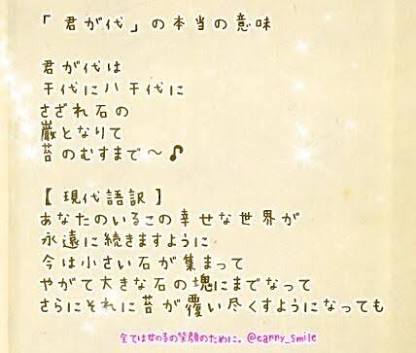 「君が代」の本当の意味
君が代は
千代に八千代に
さざれ石の
巌となりて
苔のむすまで〜♪
【現代語訳】
あなたのいるこの幸せな世界が
永遠に続きますように
今は小さい石が集まって
やがて大きな石の塊にまでなって
さらにそれに苔が覆い尽くすようになっても
全ては女の子の笑顔のために。@carry_smile